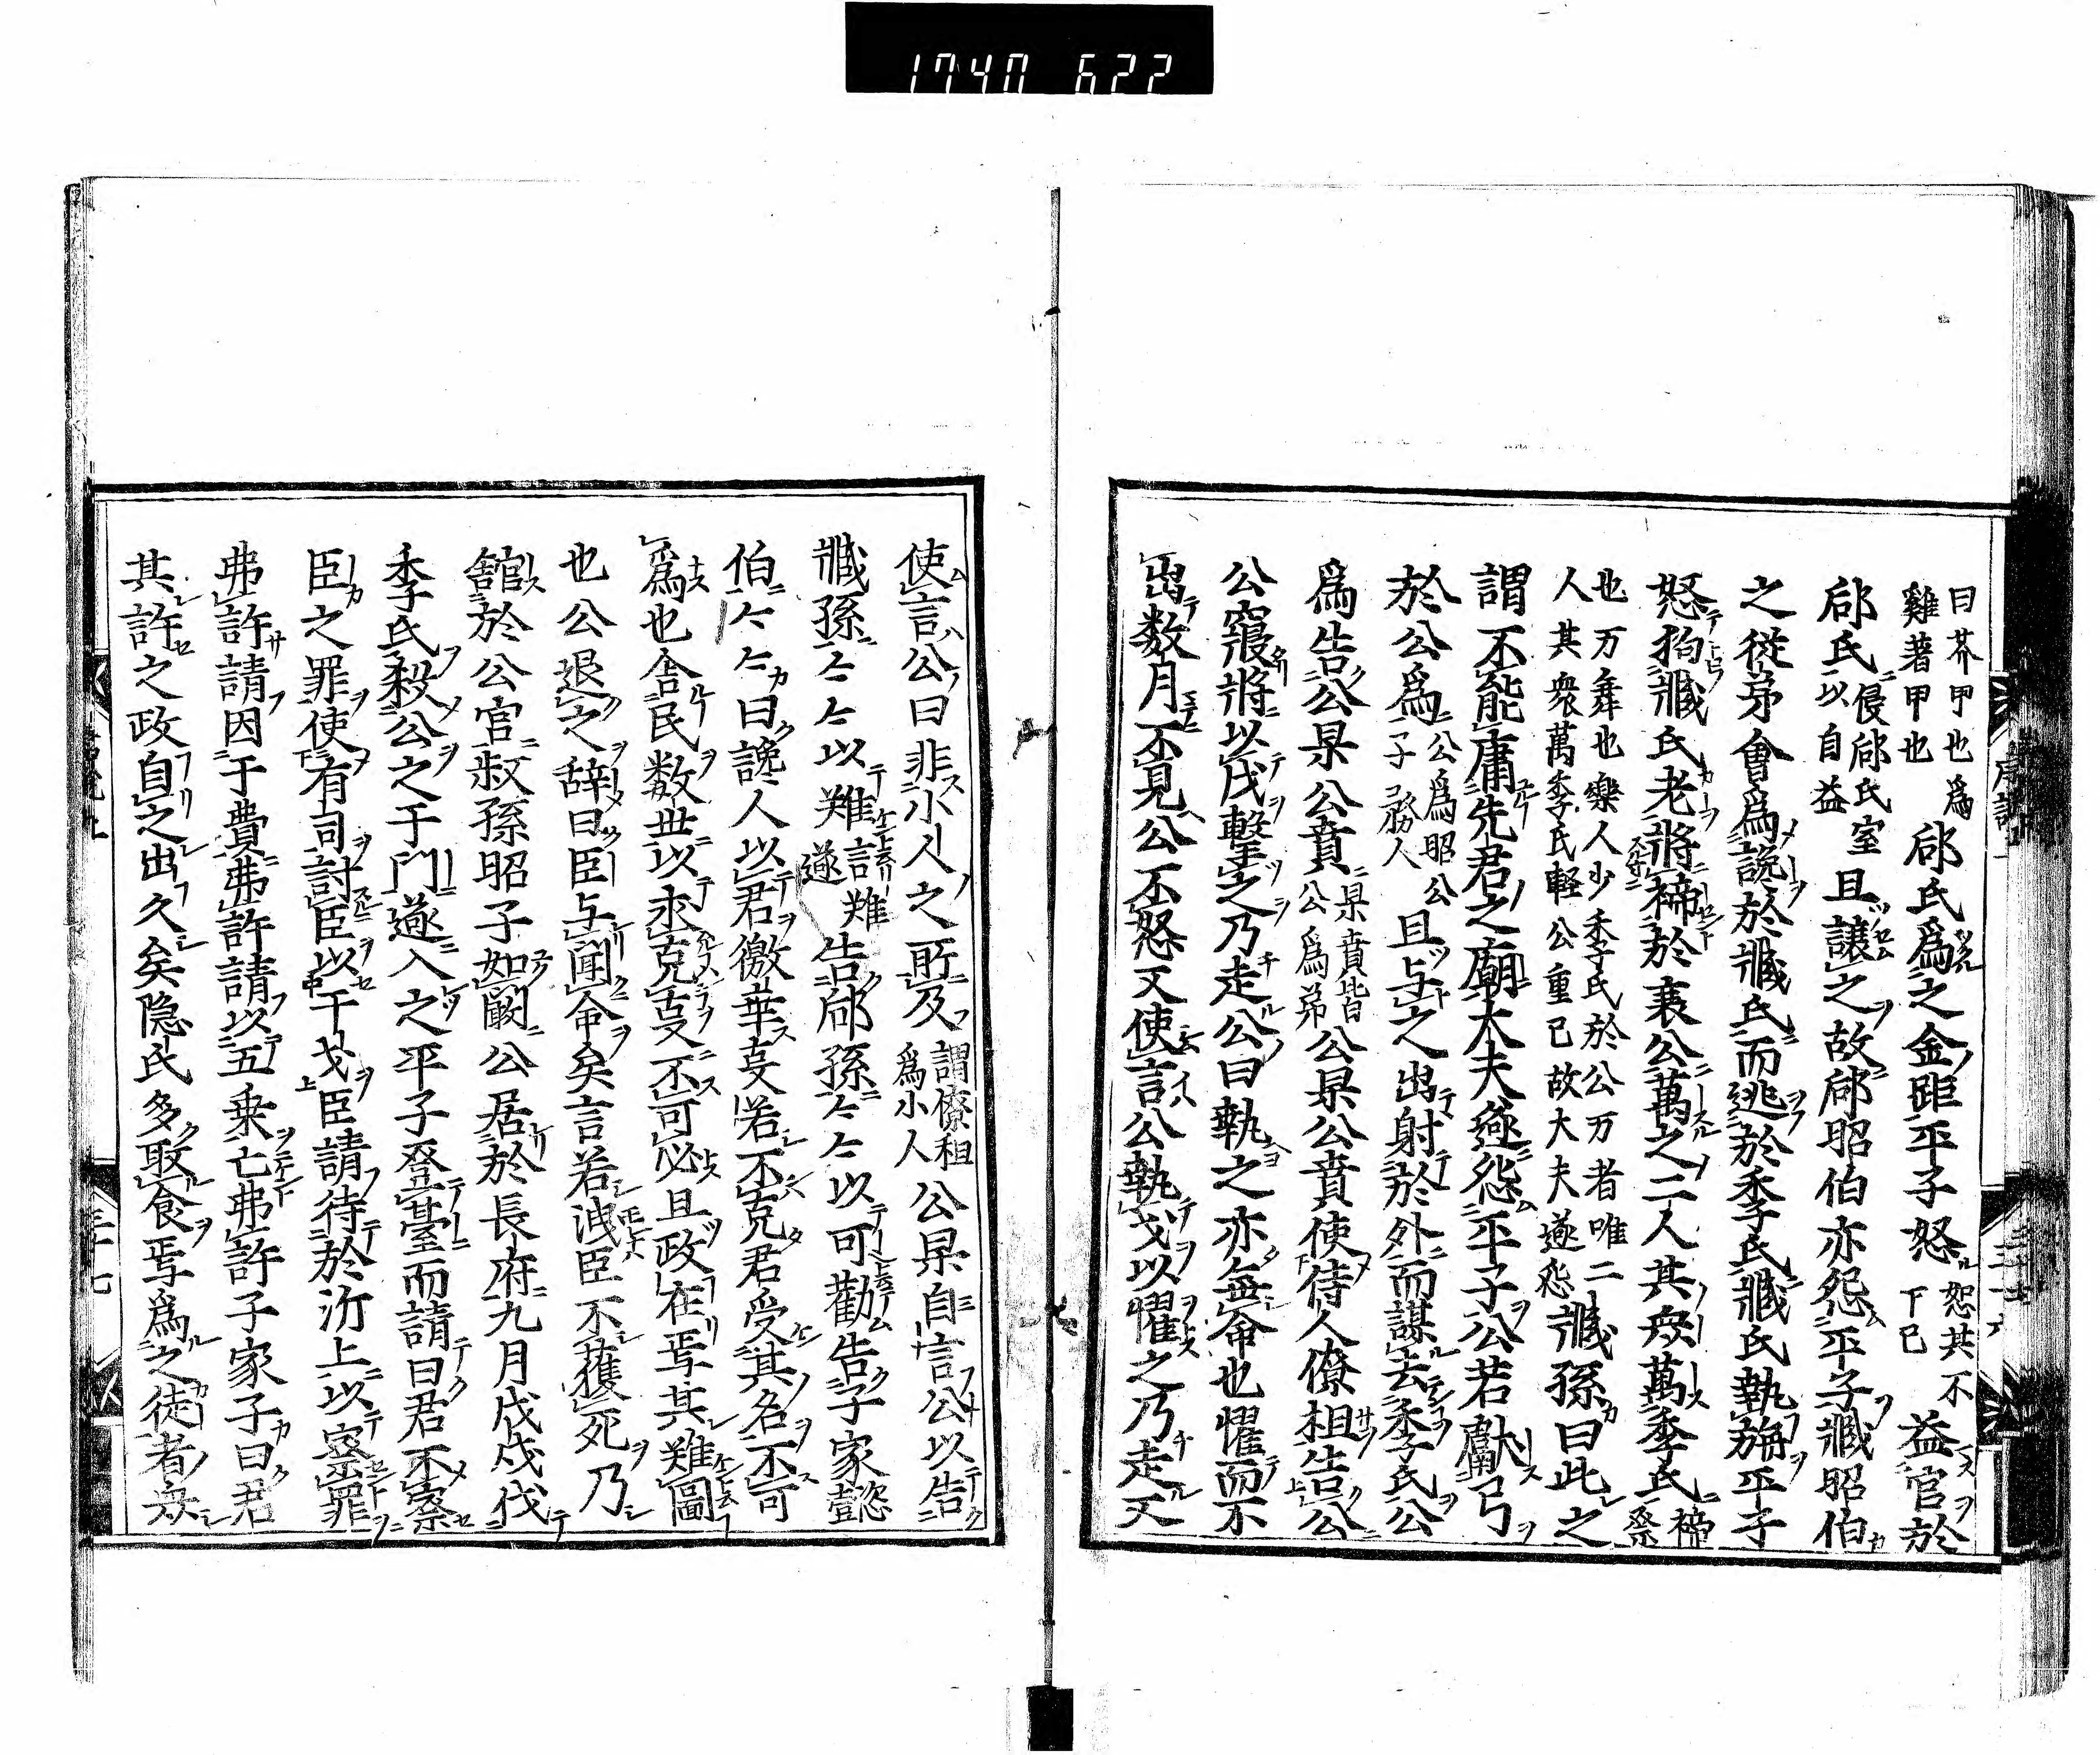 1740 622
曰芥甲也爲
雞著甲也
郈氏爲之金距平子怒
怒其不
下已
益宮於
郈氏
侵郈氏室
以自益
且譲之故郈昭伯亦怨平子臧昭伯
之従弟會爲讒於臧氏而逃於季氏臧氏執旃平子
怒拘臧氏老將禘於襄公萬之二人其衆萬季氏
禘
祭
也万舞也樂人少季氏於公万者唯二
人其衆萬季氏軽公重己故大夫遂怨
臧孫曰此之
謂不能庸先君之廟大夫遂怨平子公若獻弓
於公爲
公爲昭公
子務人
且与之出射於外而謀去季氏公
爲告公杲公賁
杲賁皆
公爲弟
公杲公賁使侍人僚柤告公
公寢將以戈擊之乃走公曰執之亦無命也懼而不
出数月不見公不怒又使言公執戈以懼之乃走又
使言公曰非小人之所及
謂僚柤
爲小人
公杲自言公以告
臧孫〻〻以難言難
遂
告郈孫〻〻以可勸告子家懿
伯〻〻曰讒人以君徼幸㕝若不克君受其名不可
爲也舎民数世以求克㕝不可必且政在焉其難圖
也公退之辞曰臣与聞命矣言若洩臣不獲死乃
舘於公宮叔孫昭子如闞公居於長府九月戊戌伐
季氏殺公之于門遂入之平子登臺而請曰君不察
臣之罪使有司討臣以干戈臣請待於沂上以察罪
弗許請囚于費弗許請以五乗亡弗許子家子曰君
其許之政自之出久矣隠民多取食焉爲之徒者衆
三十七